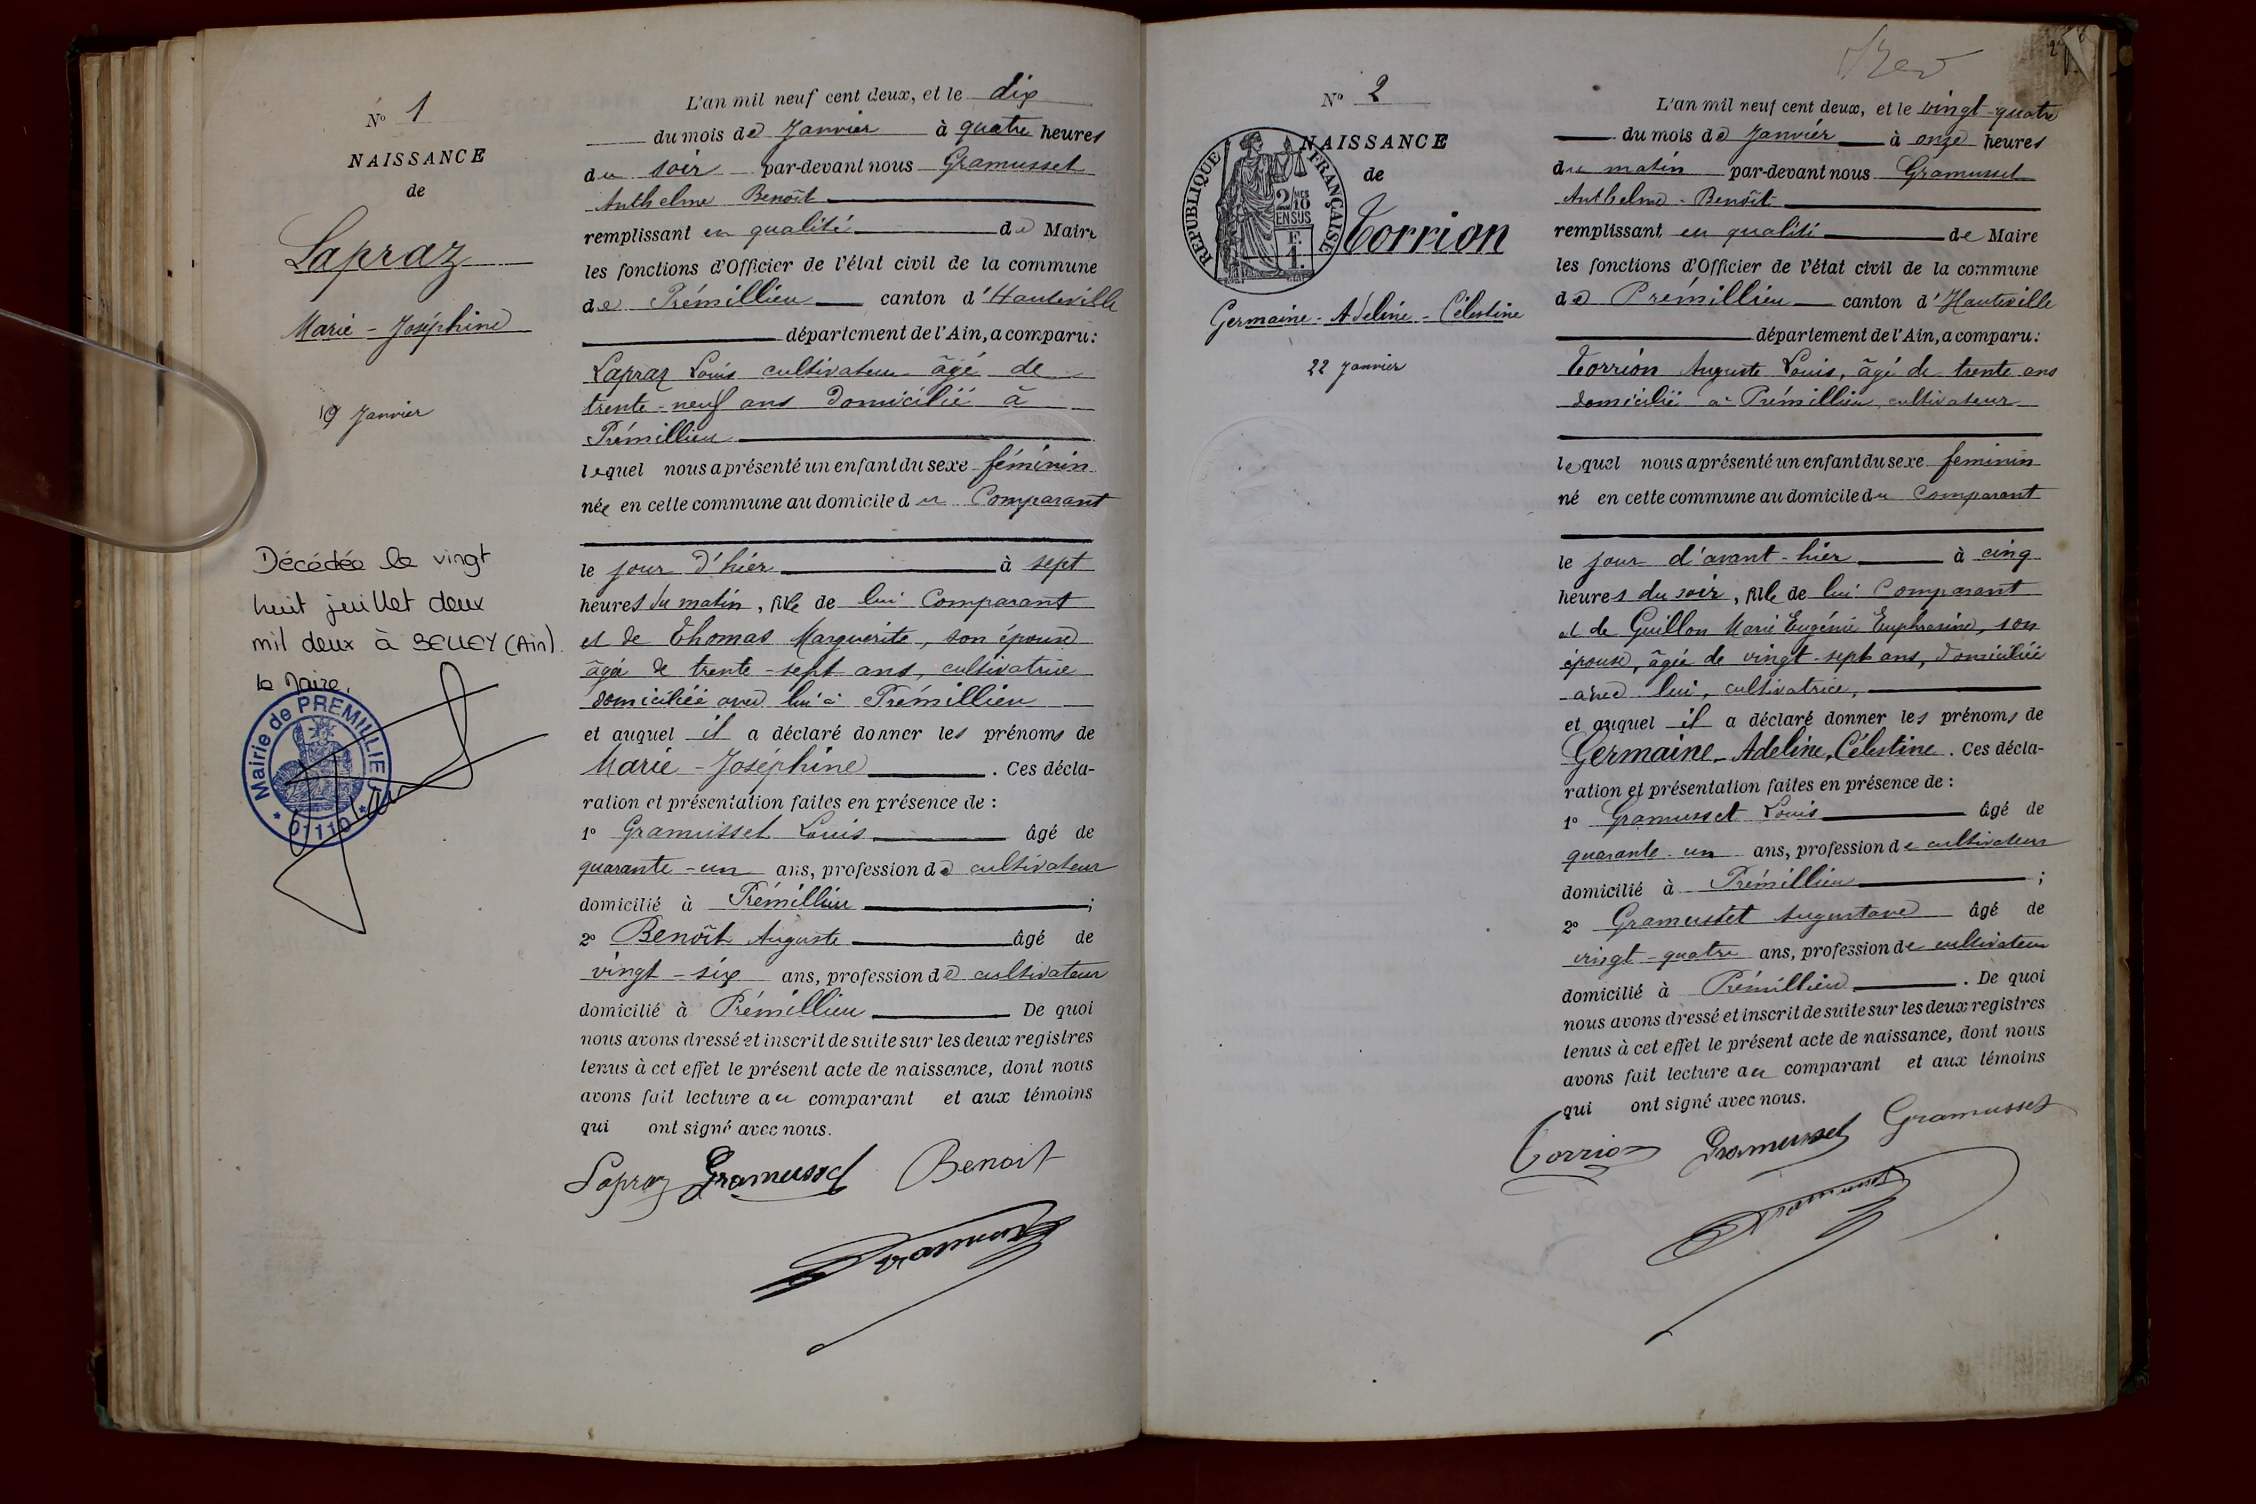 Nº 1
NAISSANCE
de
Lapraz
Marie - Joséphine
9 Janvier
Décédée le vingt
huit juillet deux
mil deux à BELLEY (Ain).
le Maire,
Mairie de PREMILLIEU
* 01110 *
L'an mil neuf cent deux, et le dix
du mois de Janvier à quatre heures
du soir par-devant nous Gramusset
Anthelme Benoît
remplissant en qualité de Maire
les fonctions d'Officier de l'état civil de la commune
de Prémillieu canton d'Hauteville
département de l'Ain, a comparu:
Lapraz Louis cultivateur âgé de
trente-neuf ans domicilié à
Prémillieu
lequel nous a présenté un enfant du sexe féminin
née en cette commune au domicile du Comparant
le jour d'hier à sept
heures du matin, fille de lui Comparant
et de Thomas Marguerite, son épouse
âgée de trente-sept ans, cultivatrice
domiciliée avec lui à Prémillieu
et auquel il a déclaré donner les prénoms de
Marie - Joséphine. Ces décla-
ration et présentation faites en présence de :
1º Gramusset Louis âgé de
quarante-un ans, profession de cultivateur
domicilié à Prémillieu ;
2º Benoît Auguste âgé de
vingt-six ans, profession de cultivateur
domicilié à Prémillieu De quoi
nous avons dressé et inscrit de suite sur les deux registres
tenus à cet effet le présent acte de naissance, dont nous
avons fait lecture au comparant et aux témoins
qui ont signé avec nous.
Lapraz Gramusset Benoit
Gramusset
Nº 2
NAISSANCE
de
REPUBLIQUE FRANÇAISE
2/10
EN SUS
F.
1.
Torrion
Germaine - Adeline - Célestine
22 Janvier
L'an mil neuf cent deux, et le vingt-quatre
du mois de Janvier à onze heures
du matin par-devant nous Gramusset
Anthelme Benoît
remplissant en qualité de Maire
les fonctions d'Officier de l'état civil de la commune
de Prémillieu canton d'Hauteville
département de l'Ain, a comparu:
Torrion Auguste Louis, âgé de trente ans
domicilié à Prémillieu, cultivateur
lequel nous a présenté un enfant du sexe feminin
né en cette commune au domicile du Comparant
le jour d'avant-hier à cinq
heures du soir, fille de lui Comparant
et de Guillon Marie Eugénie Euphrasine, son
épouse, âgée de vingt-sept ans, domiciliée
avec lui, cultivatrice,
et auquel il a déclaré donner les prénoms de
Germaine - Adeline, Célestine. Ces décla-
ration et présentation faites en présence de :
1º Gramusset Louis âgé de
quarante-un ans, profession de cultivateur
domicilié à Prémillieu ;
2º Gramusset Augustave âgé de
vingt-quatre ans, profession de cultivateur
domicilié à Prémillieu. De quoi
nous avons dressé et inscrit de suite sur les deux registres
tenus à cet effet le présent acte de naissance, dont nous
avons fait lecture au comparant et aux témoins
qui ont signé avec nous.
Torrion Gramusset Gramusset
Gramusset